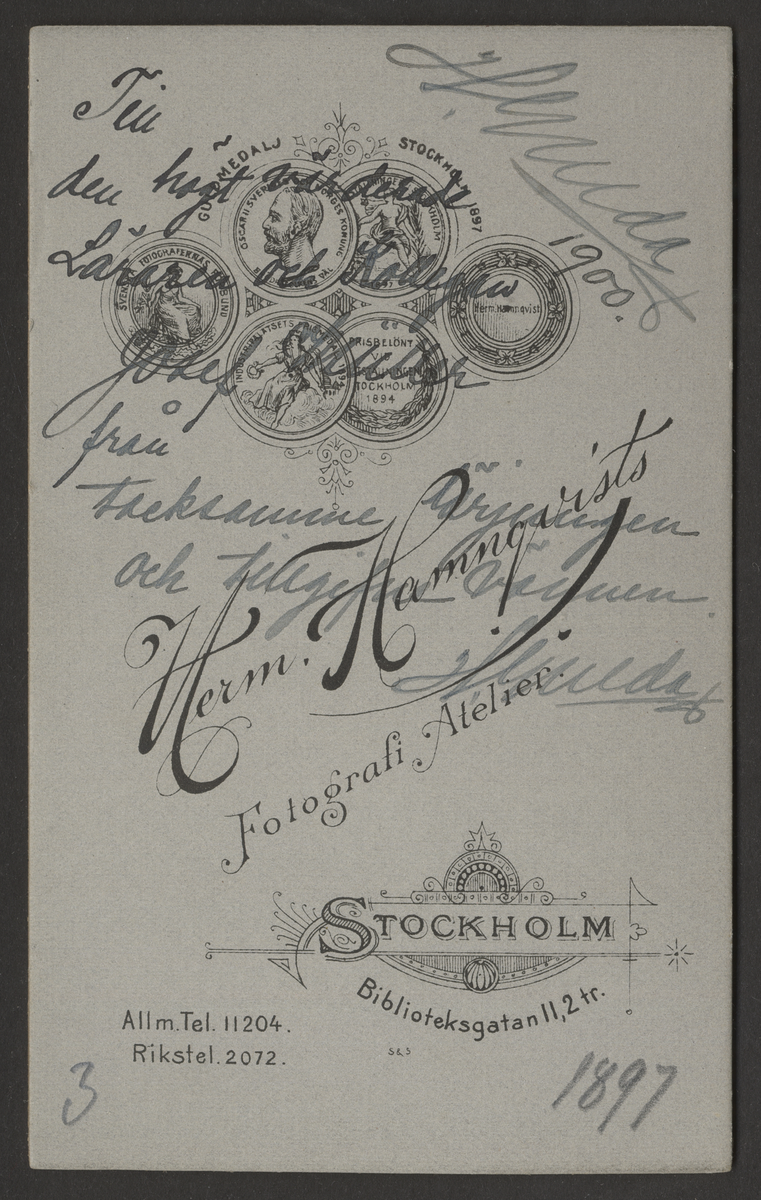 Till
den högt värderade
Läraren och Kollegan
1900.
Josef
från
tacksamme lärjungen
och tillgifne vännen
GULDMEDALJ STOCKHOLM 1897
OSCAR II SVERIGES OCH NORGES KONUNG
SVENSKA FOTOGRAFERNAS
Herm. Hamnqvist
PRISBELÖNT
VID
UTSTÄLLNINGEN
STOCKHOLM
1894
Herm. Hamnqvists
Fotografi Atelier.
STOCKHOLM
Biblioteksgatan 11, 2 tr.
Allm. Tel. 11204.
Rikstel. 2072.
S&S
3
1897